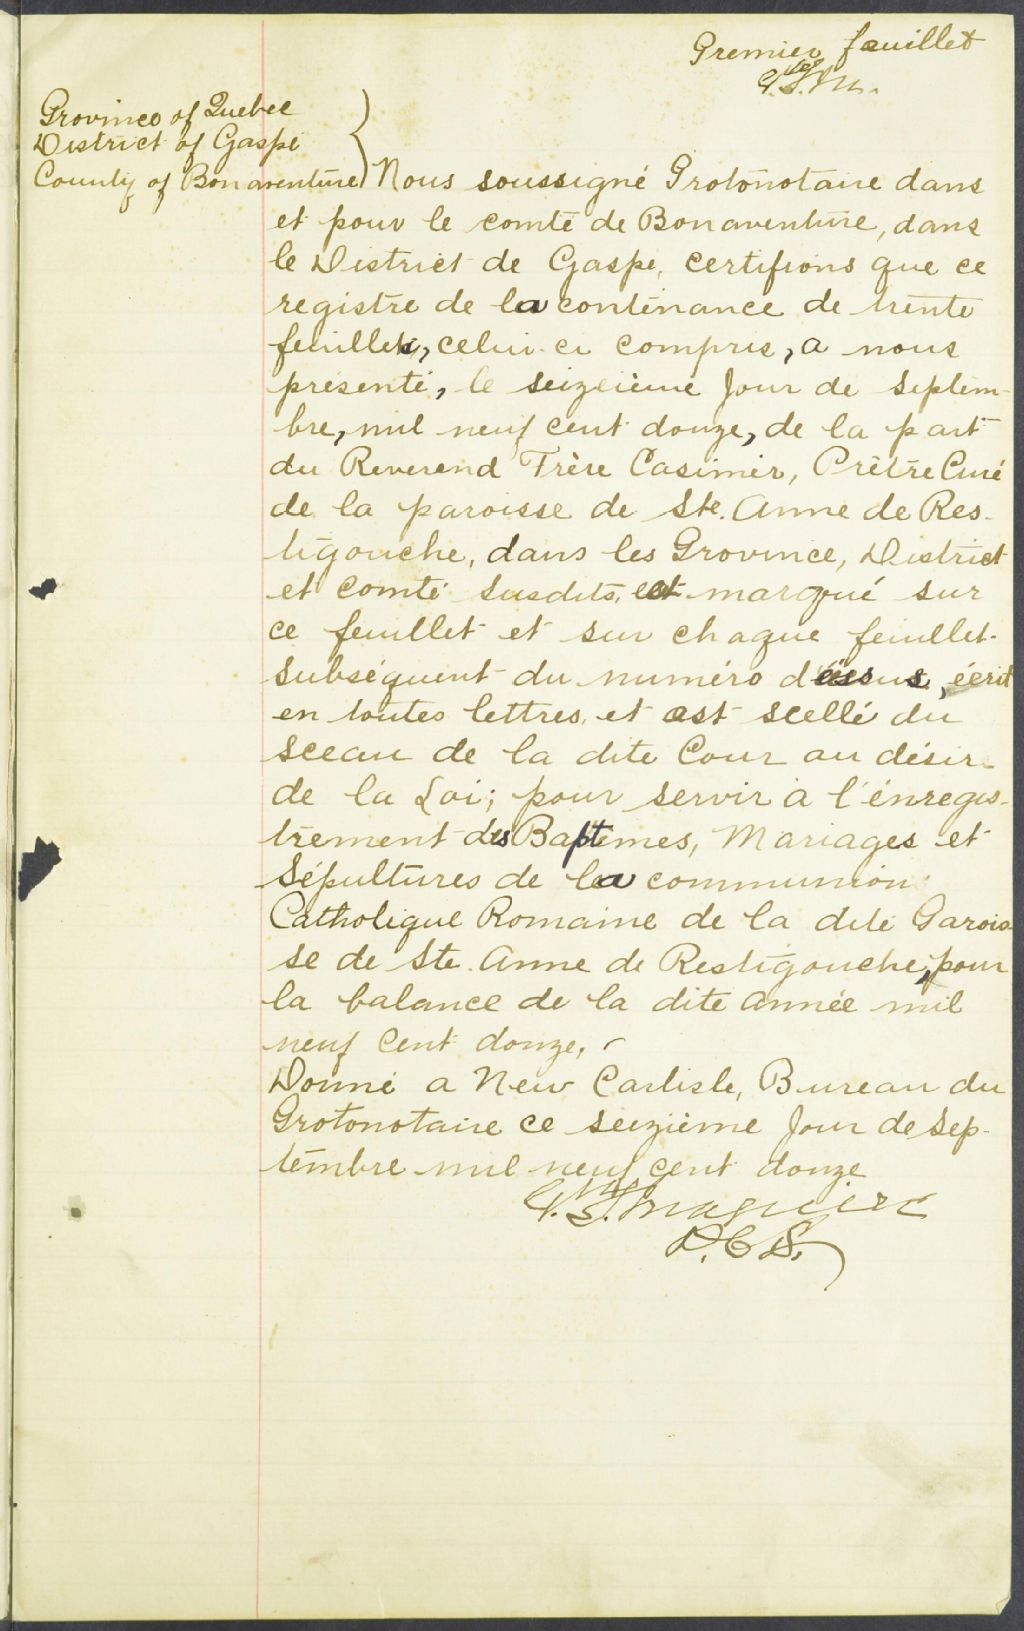 Premier feuillet
G.S.M.
Province of Quebec
District of Gaspé
County of Bonaventure} Nous soussigné Protonotaire dans
et pour le comté de Bonaventure, dans
le District de Gaspé, certifions que ce
registre de la contenance de trente
feuillets, celui-ci compris, a nous
présenté, le seizeieme Jour de Septem-
bre, mil neuf cent douze, de la part
du Reverend Frère Casimer, Prêtre Curé
de la paroisse de Ste. Anne de Res-
tigouche, dans les Province, District
et Comté susdits, est marqué sur
ce feuillet et sur chaque feuillet
subséquent du numéro dessus, écrit
en toutes lettres, et est scellé du
sceau de la dite Cour au désir
de la Loi; pour servir à l'énregis-
trement des Baptemes, Mariages et
Sépultures de la communion
Catholique Romaine de la dite Parois-
se de Ste. Anne de Restigouche, pour
la balance de la dite Année mil
neuf Cent douze.
Donné a New Carlisle, Bureau du
Protonotaire ce seizième Jour de Sep-
tembre mil neuf cent douze
Maguire
D.C.S.